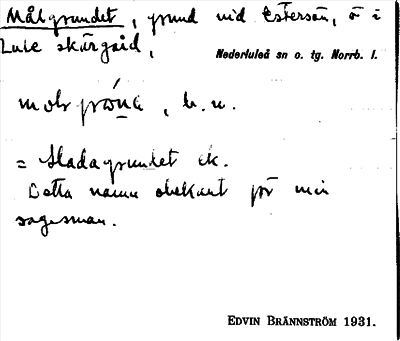 Målgrundet, grund vid Estersön, ö i
Lule skärgård,
Nederluleå sn o. tg. Norrb. l.
b. u.
= Stadagrundet ek.
Detta namn obekant för min
sagesman.
EDVIN BRÄNNSTRÖM 1931.